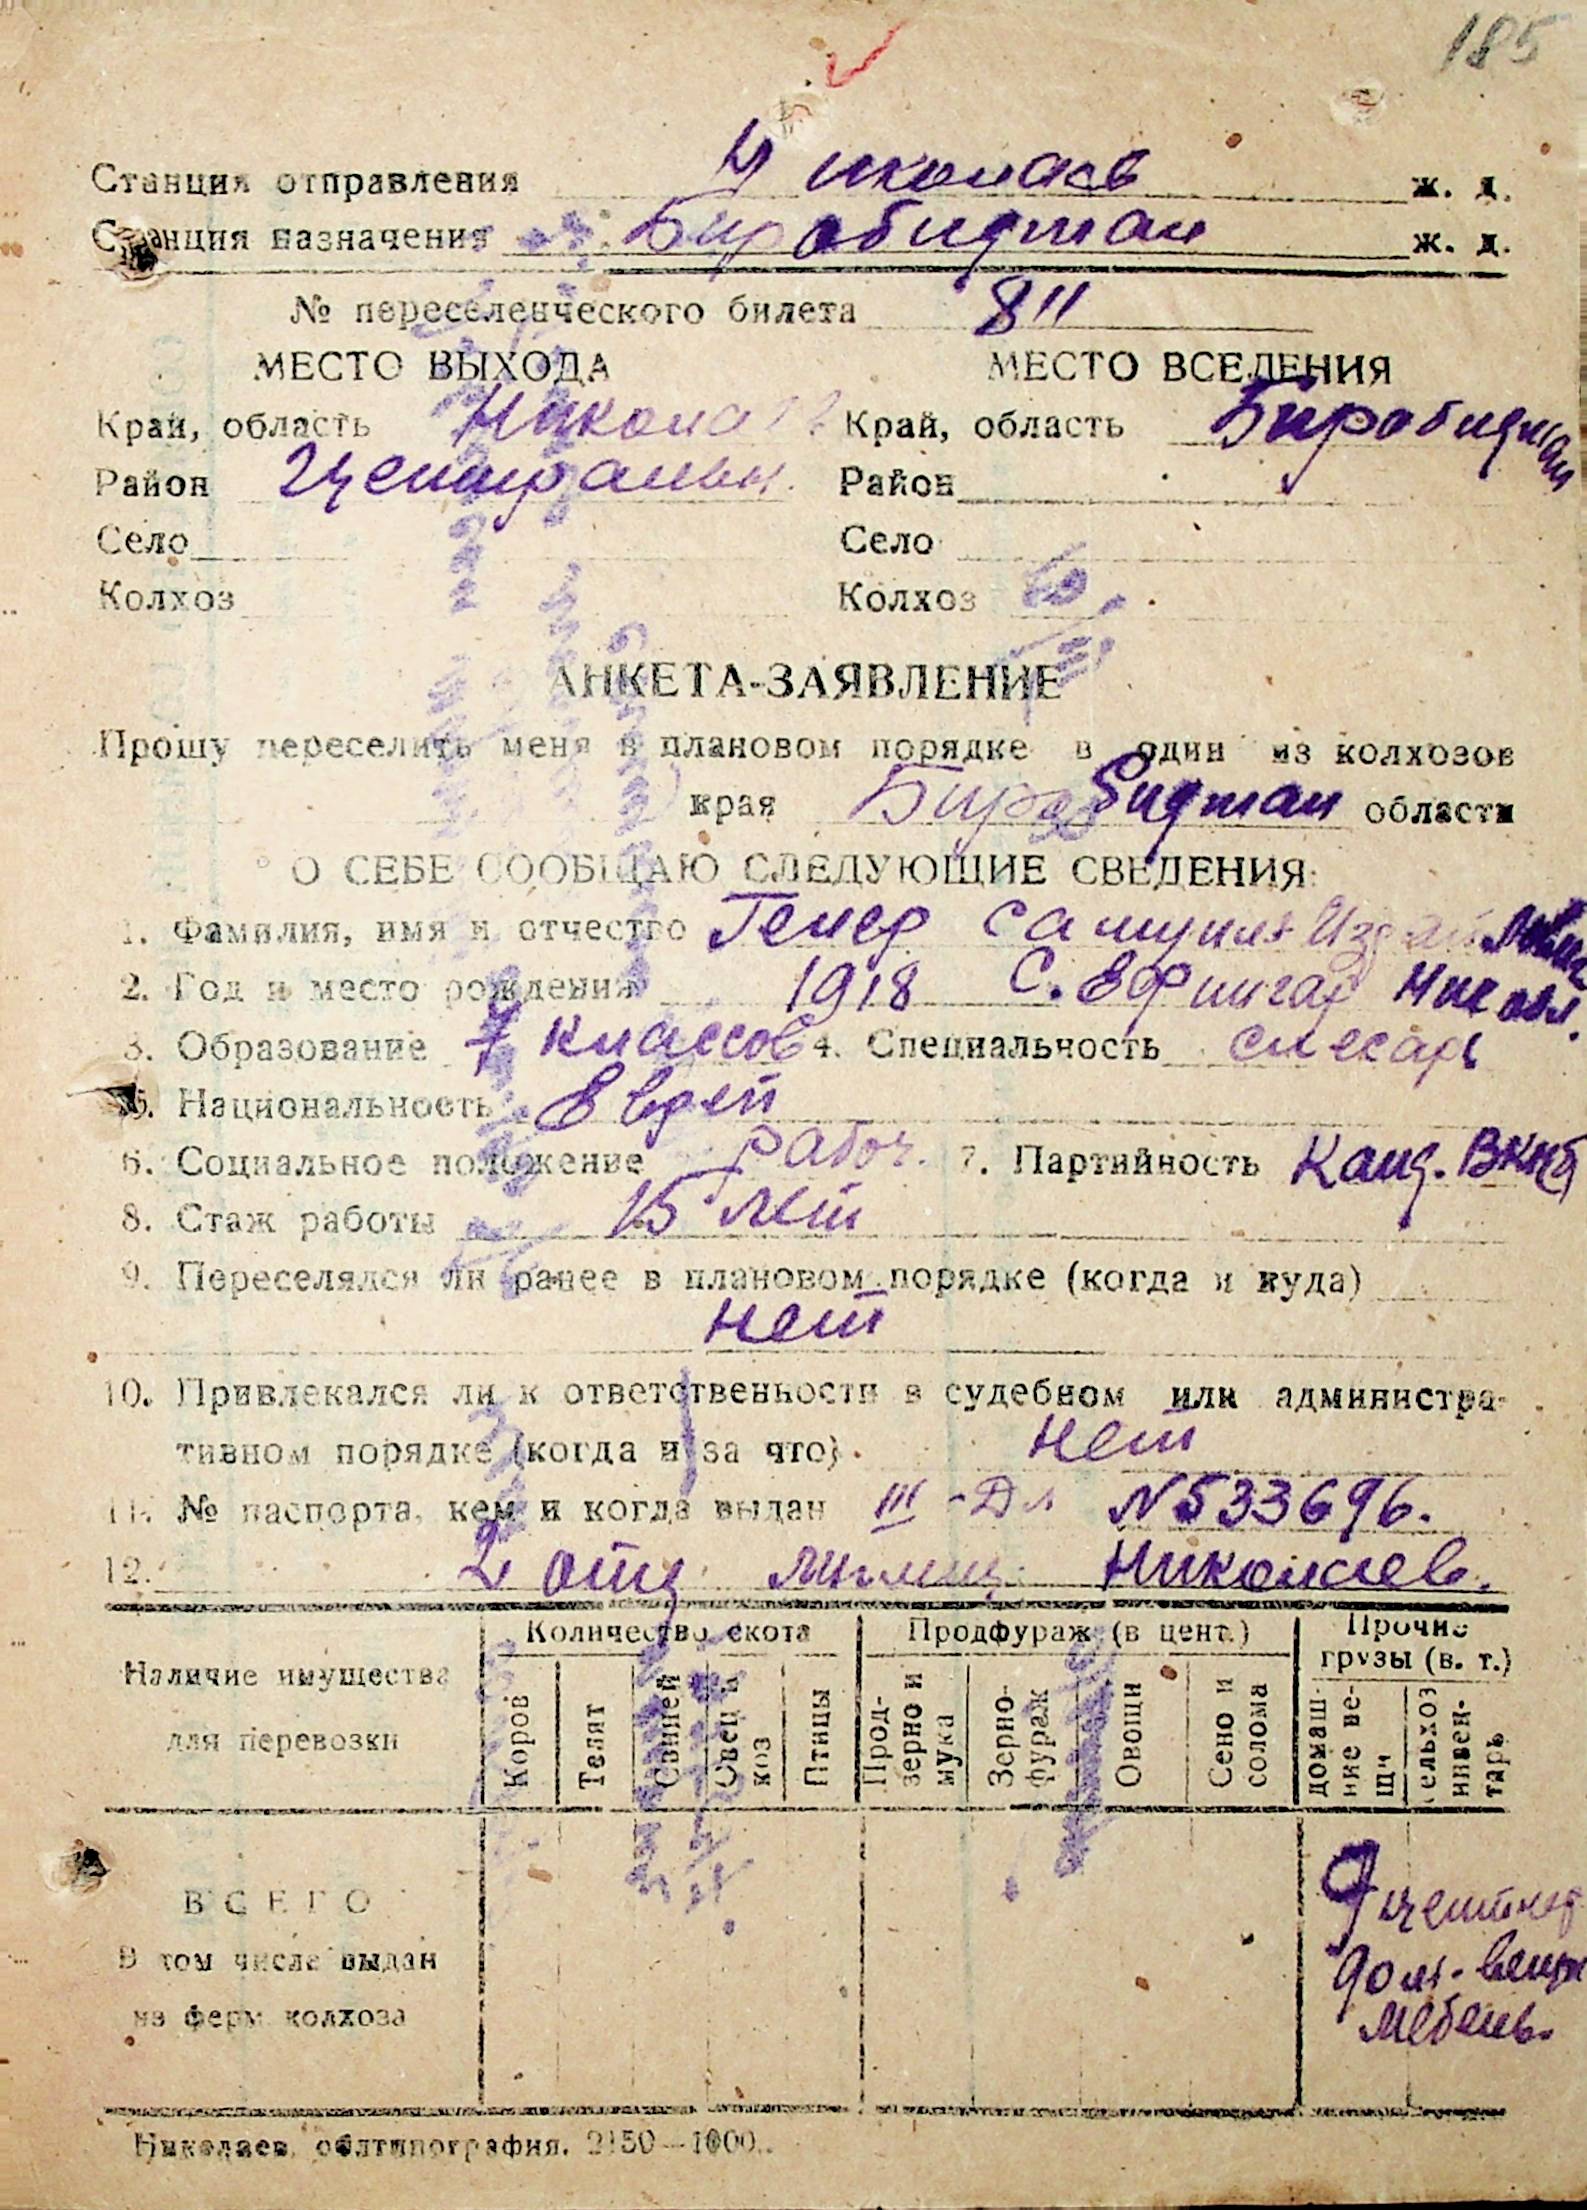 185
Станция отправления Николаев ж. д.
Станция назначения Биробиджан ж. д.
№ переселенческого билета 811
МЕСТО ВЫХОДА МЕСТО ВСЕЛЕНИЯ
Край, область Никола Край, область Биробиджан
Район Централььн. Район
Село Село
Колхоз Колхоз
АНКЕТА-ЗАЯВЛЕНИЕ
Прошу переселить меня в плановом порядке в один из колхозов
края Биробиджан области
О СЕБЕ СООБЩАЮ СЛЕДУЮЩИЕ СВЕДЕНИЯ:
1. Фамилия, имя и отчество Генер Самуил
2. Год и место рождения 1918 С. Ефингар Ник обл.
3. Образование 7 классов 4. Специальность слесарь
5. Национальность Еврей
6. Социальное положение рабоч. 7. Партийность Канд. ВКПб
8. Стаж работы 15 лет
9. Переселялся ли ранее в плановом порядке (когда и куда)
нет
10. Привлекался ли к ответственности в судебном или администра-
тивном порядке (когда и за что). нет
11. № паспорта, кем и когда выдан III - Дл N 533696.
12. 2 отд милиц. Николаев.
Наличие имущества для перевозки
Количество скота Продфураж (в цент.) Прочие грузы (в. т.)
Коров Телят Свиней Овец и коз Птицы Прод-зерно и мука Зерно-фураж Овощи Сено и солома домаш-ние ве-щи сельхоз инвен-тарь
ВСЕГО
В том числе выдан
на ферм колхоза
дом. вещи
мебель.
Николаев, облтипография. 2150—1000.